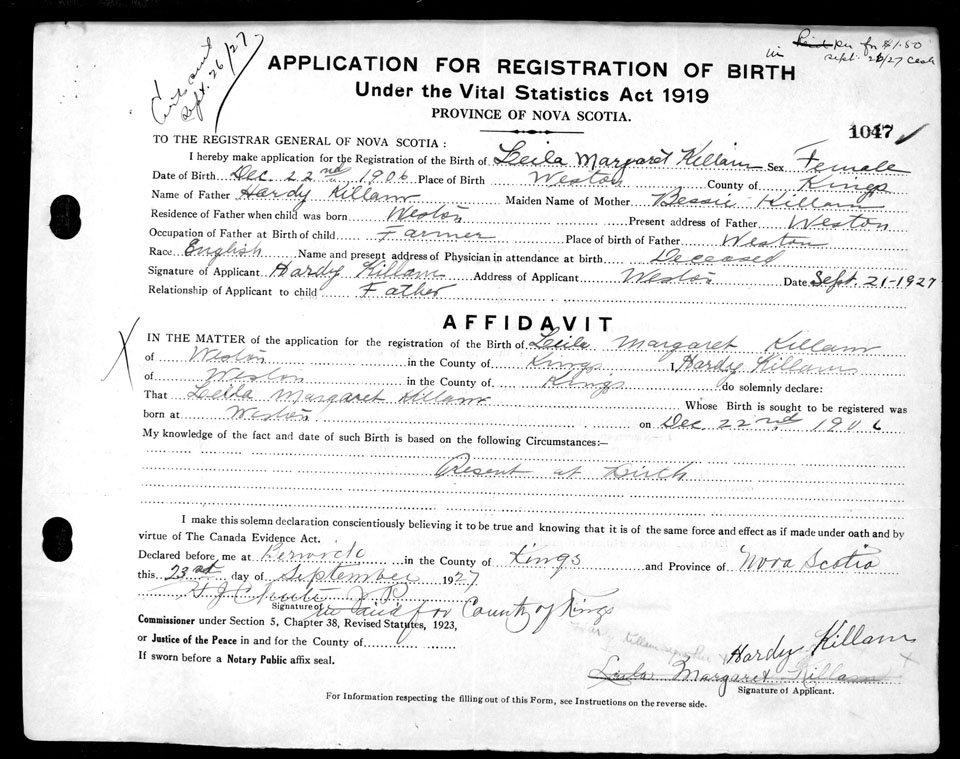 Cert. sent Sept. 26/27
in per for $1.50
Sept. 26/27 Cash
APPLICATION FOR REGISTRATION OF BIRTH
Under the Vital Statistics Act 1919
PROVINCE OF NOVA SCOTIA.
1047
TO THE REGISTRAR GENERAL OF NOVA SCOTIA:
I hereby make application for the Registration of the Birth of Leila Margaret Killam Sex Female
Date of Birth Dec. 22nd 1906 Place of Birth Weston County of Kings
Name of Father Hardy Killam Maiden Name of Mother Bessie Killam
Residence of Father when child was born Weston Present address of Father Weston
Occupation of Father at Birth of child Farmer Place of birth of Father Weston
Race English Name and present address of Physician in attendance at birth Deceased
Signature of Applicant Hardy Killam Address of Applicant Weston Date Sept. 21-1927
Relationship of Applicant to child Father
AFFIDAVIT
IN THE MATTER of the application for the registration of the Birth of Leila Margaret Killam
of Weston in the County of Kings I Hardy Killam
of Weston in the County of Kings do solemnly declare:
That Leila Margaret Killam Whose Birth is sought to be registered was
born at Weston on Dec. 22nd 1906
My knowledge of the fact and date of such Birth is based on the following Circumstances:—
Present at birth
I make this solemn declaration conscientiously believing it to be true and knowing that it is of the same force and effect as if made under oath and by
virtue of The Canada Evidence Act.
Declared before me at Berwick in the County of Kings and Province of Nova Scotia
this 23rd day of September 1927
Signature of in and for County of Kings
Commissioner under Section 5, Chapter 38, Revised Statutes, 1923,
or Justice of the Peace in and for the County of
If sworn before a Notary Public affix seal.
Hardy Killam
Leila Margaret Killam
Signature of Applicant.
For Information respecting the filling out of this Form, see Instructions on the reverse side.